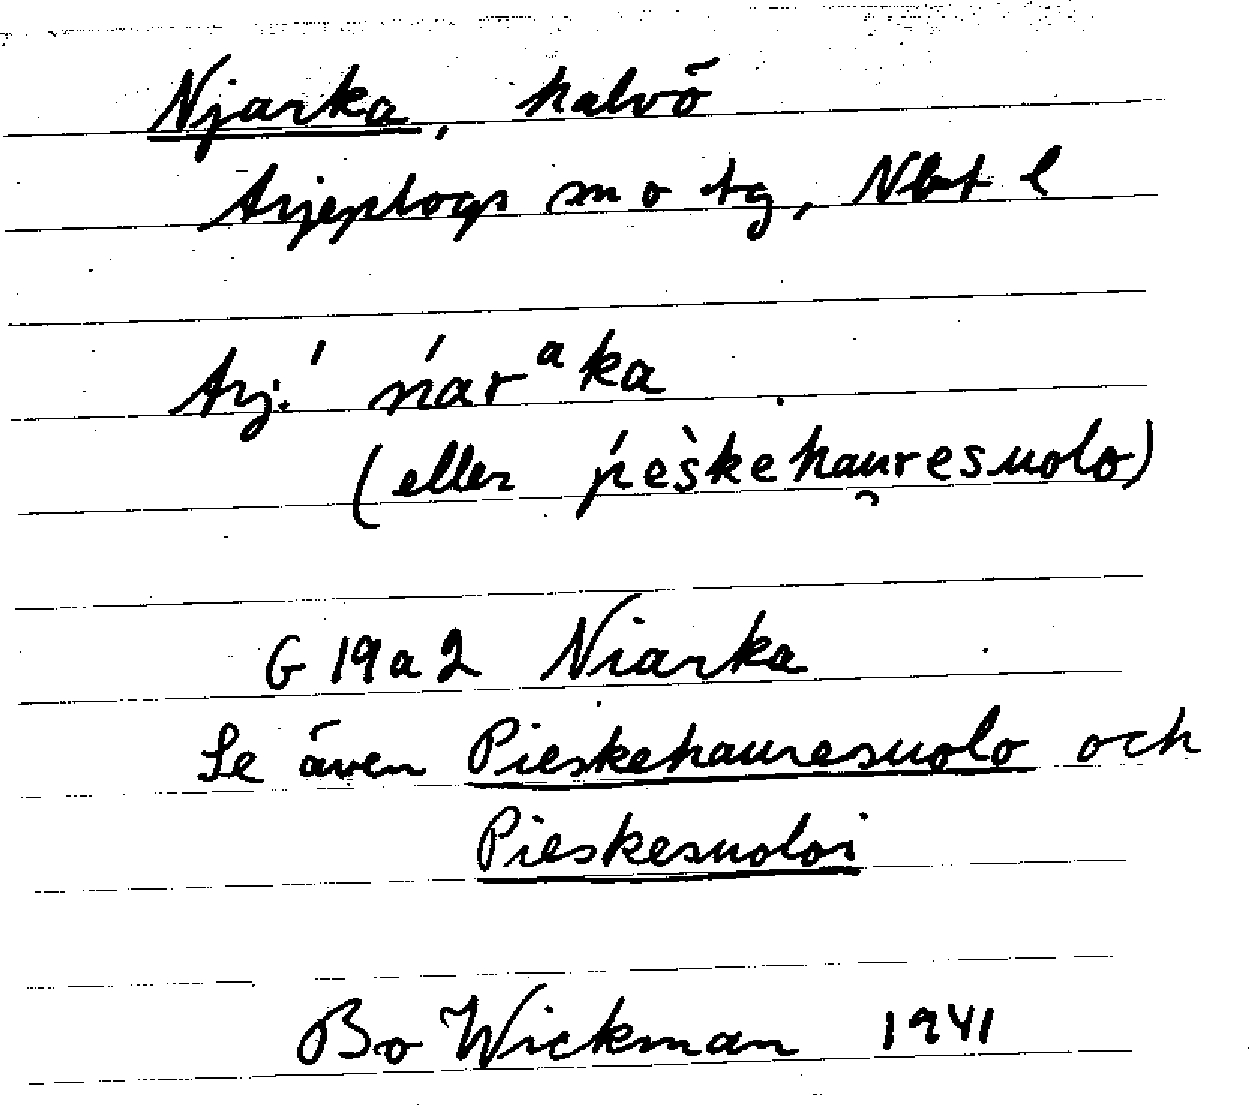 Njarka, halvö
Arjeplogs sn o tg, Nbt l
Arj.' ńárᵃka
(eller ṕèškehau̯resuolo)
G 19 a 2 Niarka
Se även Pieskehauresuolo och
Pieskesuoloi
Bo Wickman 1941